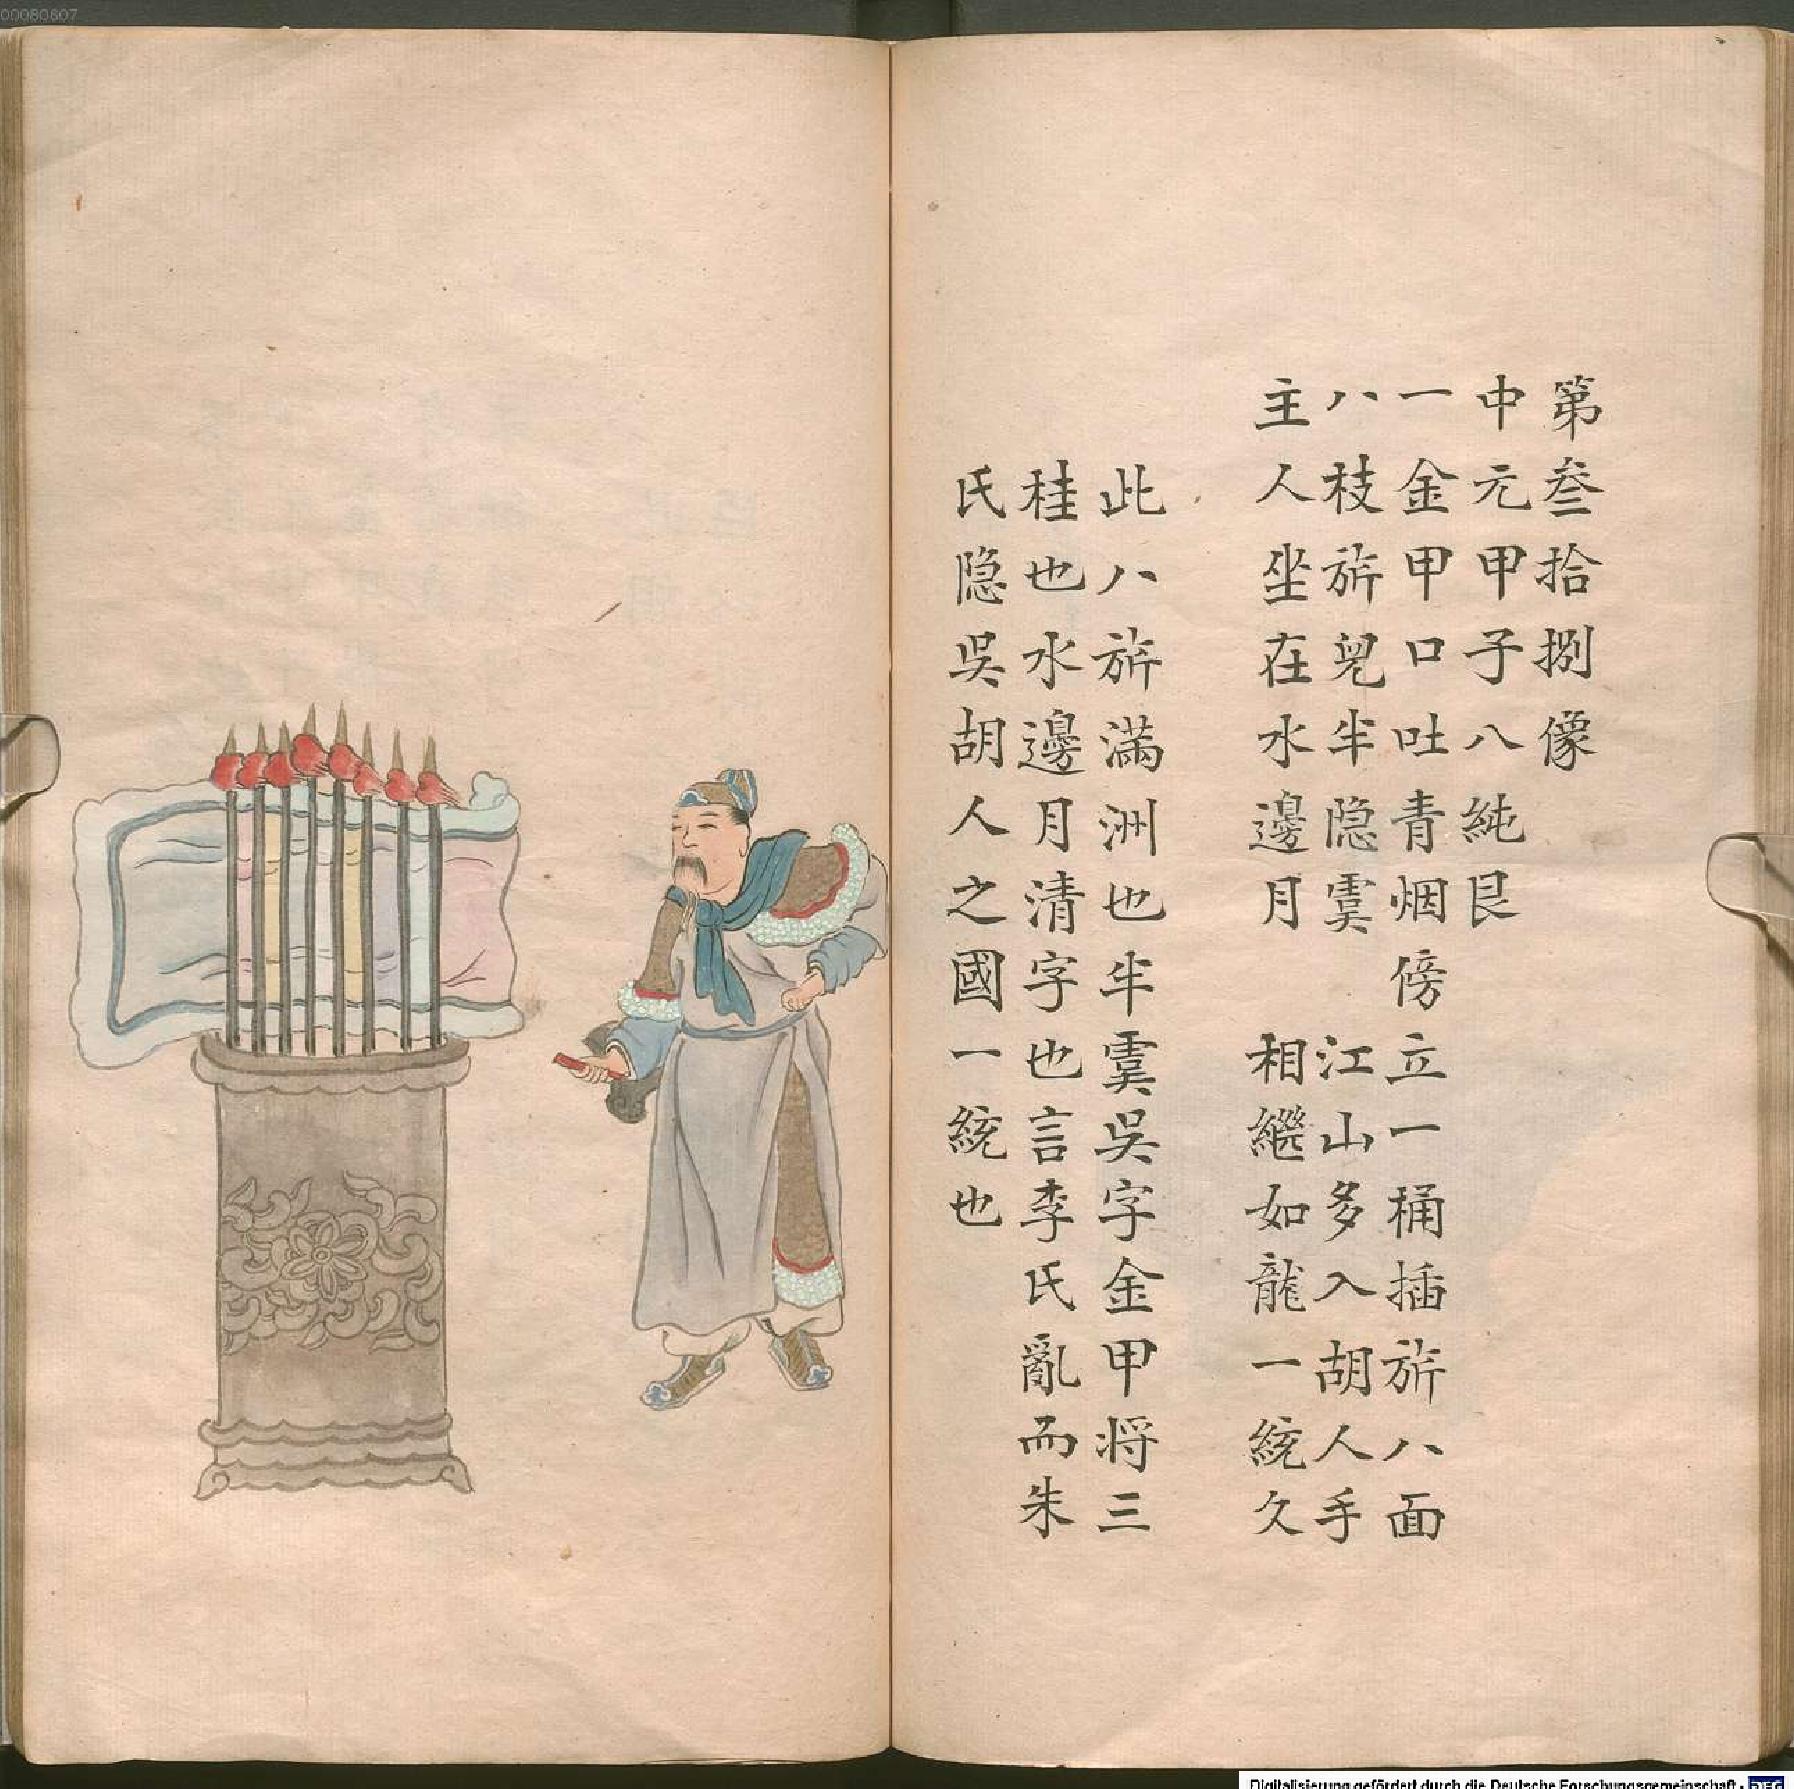 00080607
第叁拾捌像
中元甲子八 純艮
一金甲口吐青烟傍立一桶插旂八面
八枝旂兒半隐雲 江山多入胡人手
主人坐在水邊月 相繼如龍一統久
此八旂滿洲也半雲吳字金甲将三
桂也水邊月清字也言李氏亂而朱
氏隐吳胡人之國一統也
Digitalisierung gefördert durch die Deutsche Forschungsgemeinschaft - DFG